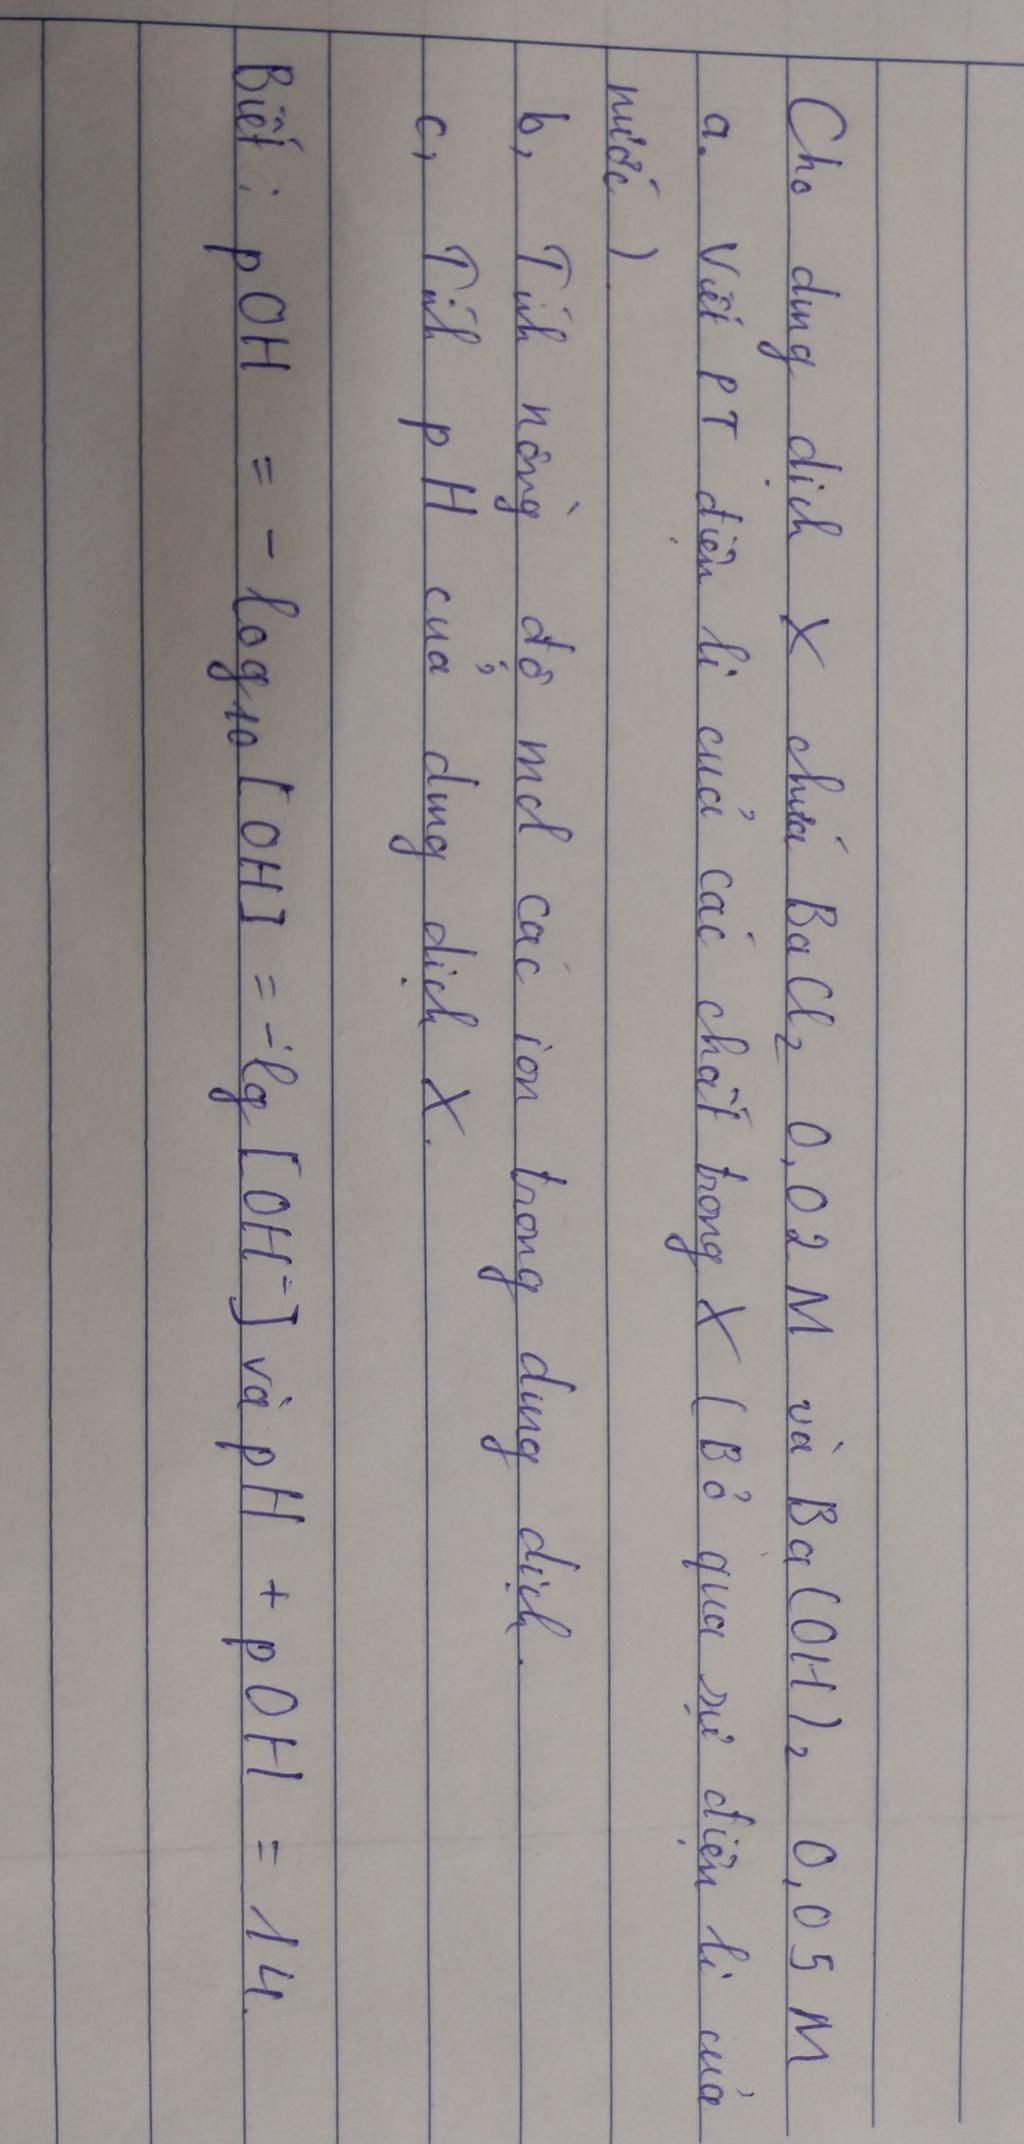 Cho dung dịch X chứa BaCl₂ 0,02 M và Ba(OH)₂ 0,05 M
a. Viết PT điện li của các chất trong X (Bỏ qua sự điện li của
nước)
b, Tính nồng độ mol các ion trong dung dịch.
c, Tính pH của dung dịch X.
Biết: pOH = - log₁₀ [OH] = - lg [OH⁻] và pH + pOH = 14.